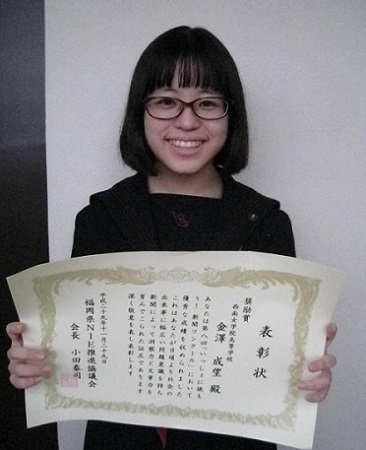 表彰状
奨励賞
西南女学院高等学校
金澤 成望 殿
あなたは第八回「いっしょに読も
う!新聞コンクール」において
優秀な成績を収められました
これはあなたが日頃より社会の
出来事に幅広い問題意識を持ち
新聞によって洞察力と文章力を
育んでこられた証であります
深く敬意を表し表彰します
平成二十九年十一月二十九日
福岡県NIE推進協議会
会長 小田泰司